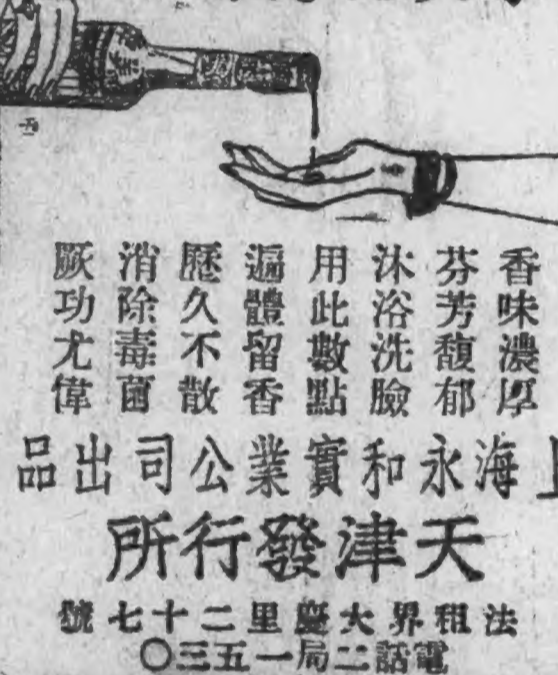 香味濃厚
芬芳馥郁
沐浴洗臉
用此數點
遍體留香
歷久不散
消除毒菌
厥功尤偉
上海永和實業公司出品
天津發行所
法租界大慶里二十七號
電話二局一五三〇